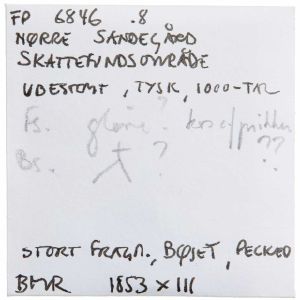 FP 6846 .8
NØRRE SANDEGÅRD
SKATTEFUNDSOMRÅDE
UBESTEMT, TYSK, 1000-TAL
Fs. glorie? kors m/prikker
Bs. ? ??
STORT FRAGM., BØJET, PECKED
BMR 1853 x 111